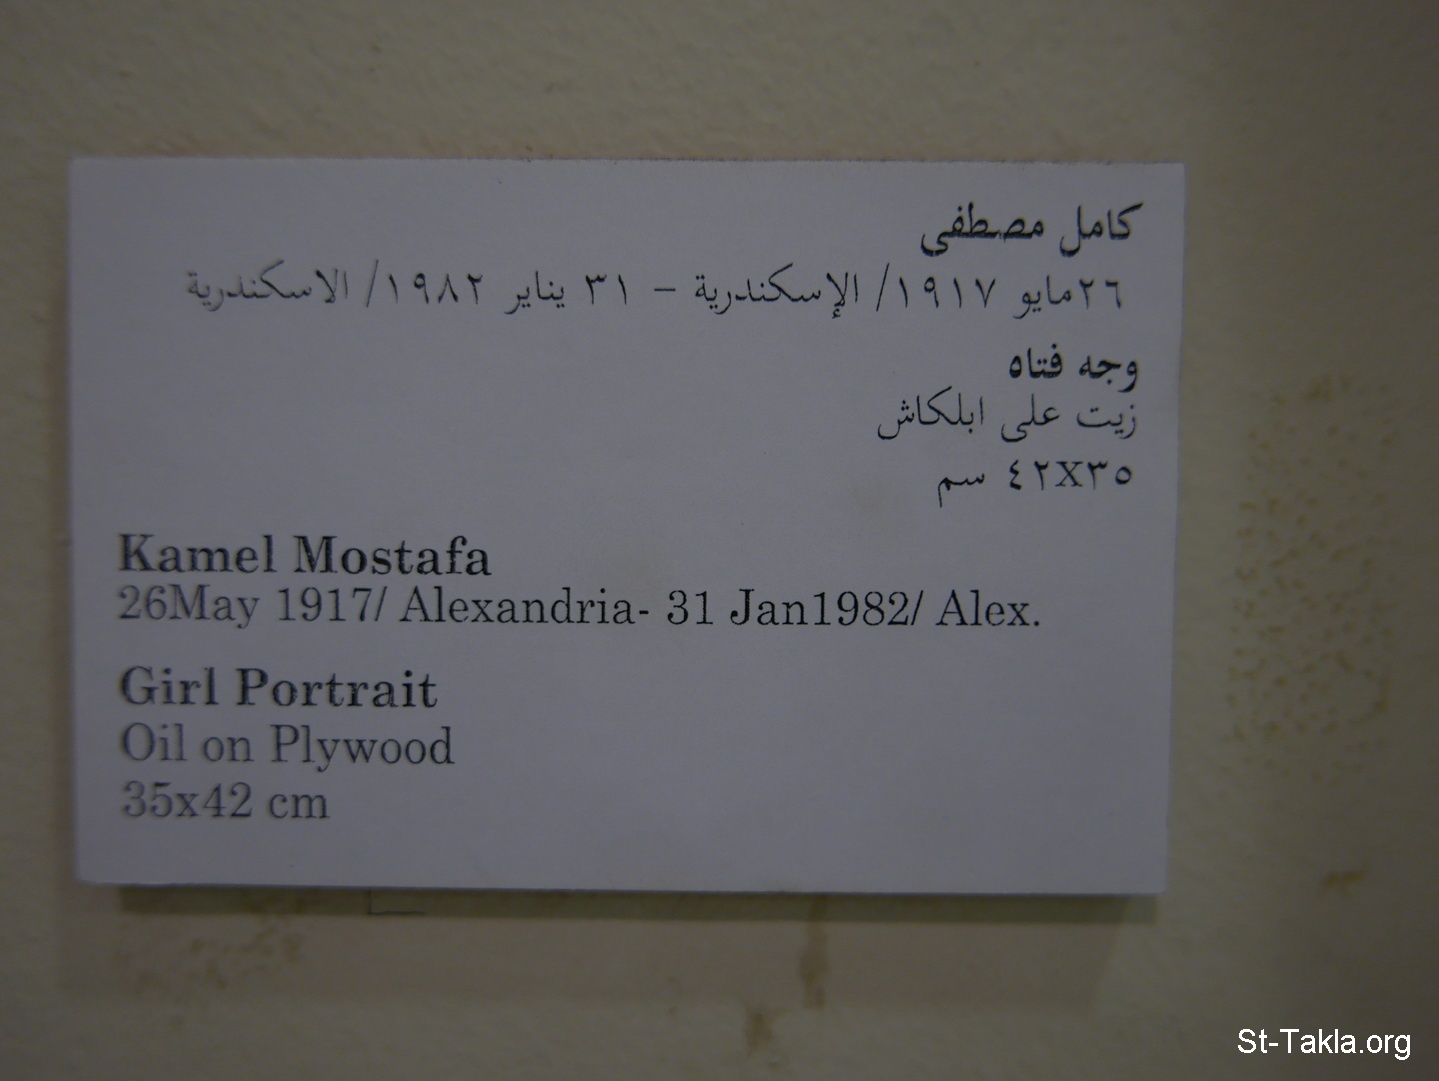 كامل مصطفى
٢٦مايو ١٩١٧/ الإسكندرية – ٣١ يناير ١٩٨٢/ الاسكندرية
وجه فتاه
زيت على ابلكاش
٤٢X٣٥ سم
Kamel Mostafa
26May 1917/ Alexandria- 31 Jan1982/ Alex.
Girl Portrait
Oil on Plywood
35x42 cm
St-Takla.org